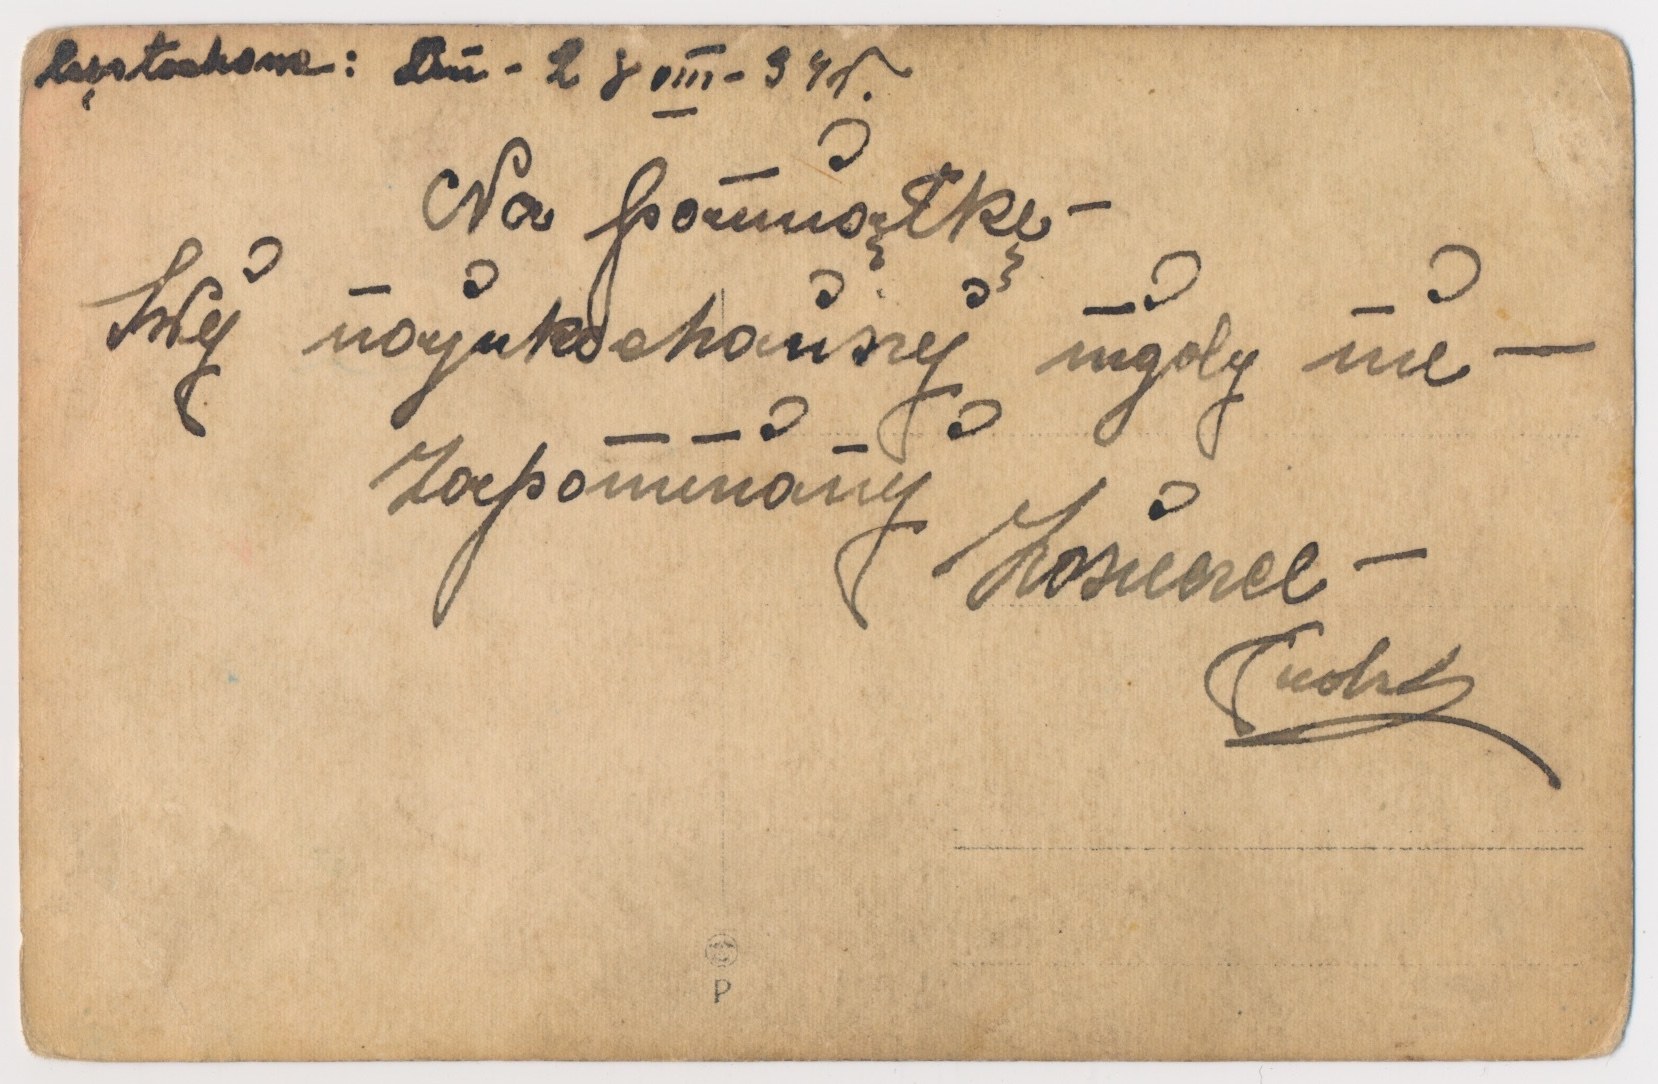 Częstochowa: Dn - 28 VIII - 34 r.
Na pamiątkę -
Swej najukochańszej nigdy nie -
zapominanej
Kosierel -
P